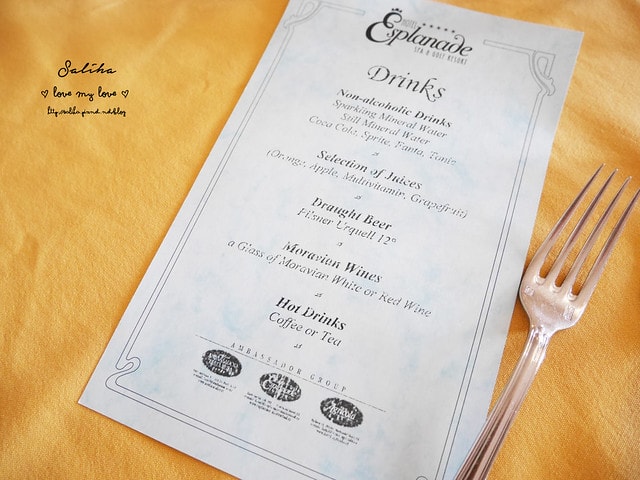 Saliha
♡ love my love ♡
HOTEL
Esplanade
SPA & GOLF RESORT
Drinks
Non-alcoholic Drinks
Sparkling Mineral Water
Still Mineral Water
Coca Cola, Sprite, Fanta, Tonic
Selection of Juices
(Orange, Apple, Multivitamin, Grapefruit)
Draught Beer
Pilsner Urquell 12°
Moravian Wines
a Glass of Moravian White or Red Wine
Hot Drinks
Coffee or Tea
AMBASSADOR GROUP
Esplanade